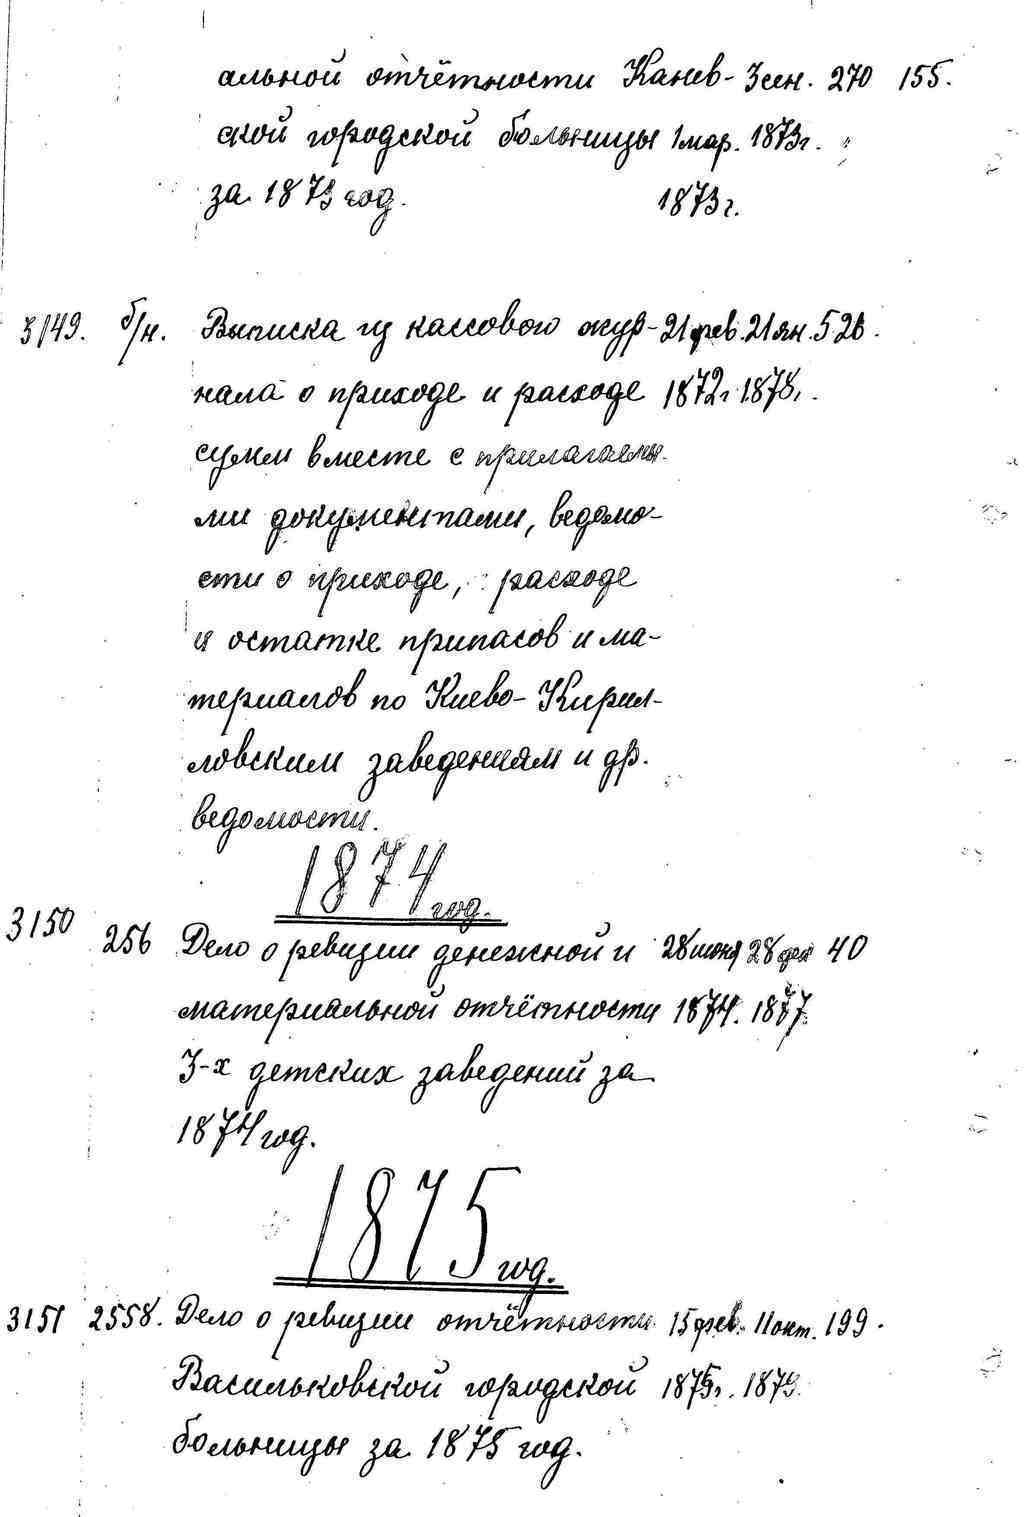 альной отчётности Канев- 3 сен. 270 155.
ской городской больницы 1 мар. 1873г.
за 1873 год. 1873г.
3149. б/н. Выписка из кассового жур- 21 фев. 21 ян. 526.
нала о приходе и расходе 1872г. 1878г.
сумм вместе с прилагаемы-
ми документами, ведомо-
сти о приходе, расходе
и остатке припасов и ма-
териалов по Киево-Кирил-
ловским заведениям и др.
ведомости.
1874 год.
3150 256 Дело о ревизии денежной и 28 июня 28 дек 40
материальной отчётности 1874. 1877.
3-х детских заведений за
1874 год.
1875 год.
3151 2558. Дело о ревизии отчётности 15 фев. 11 окт. 199.
Васильковской городской 1875г. 1879.
больницы за 1875 год.